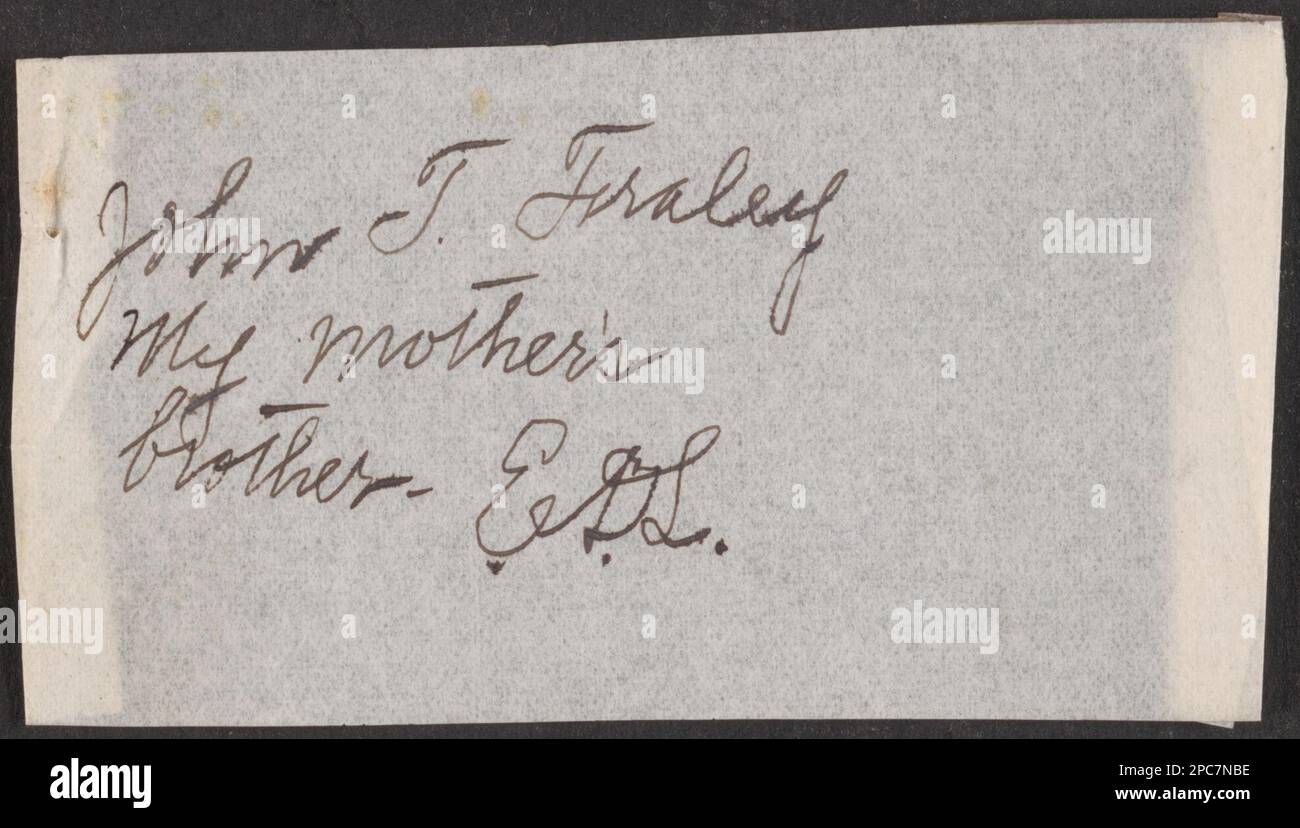 John T. Fraley
My mother's
brother - E.D.L.
alamy
alamy
alamy
alamy
a
alamy
Image ID: 2PC7NBE
www.alamy.com